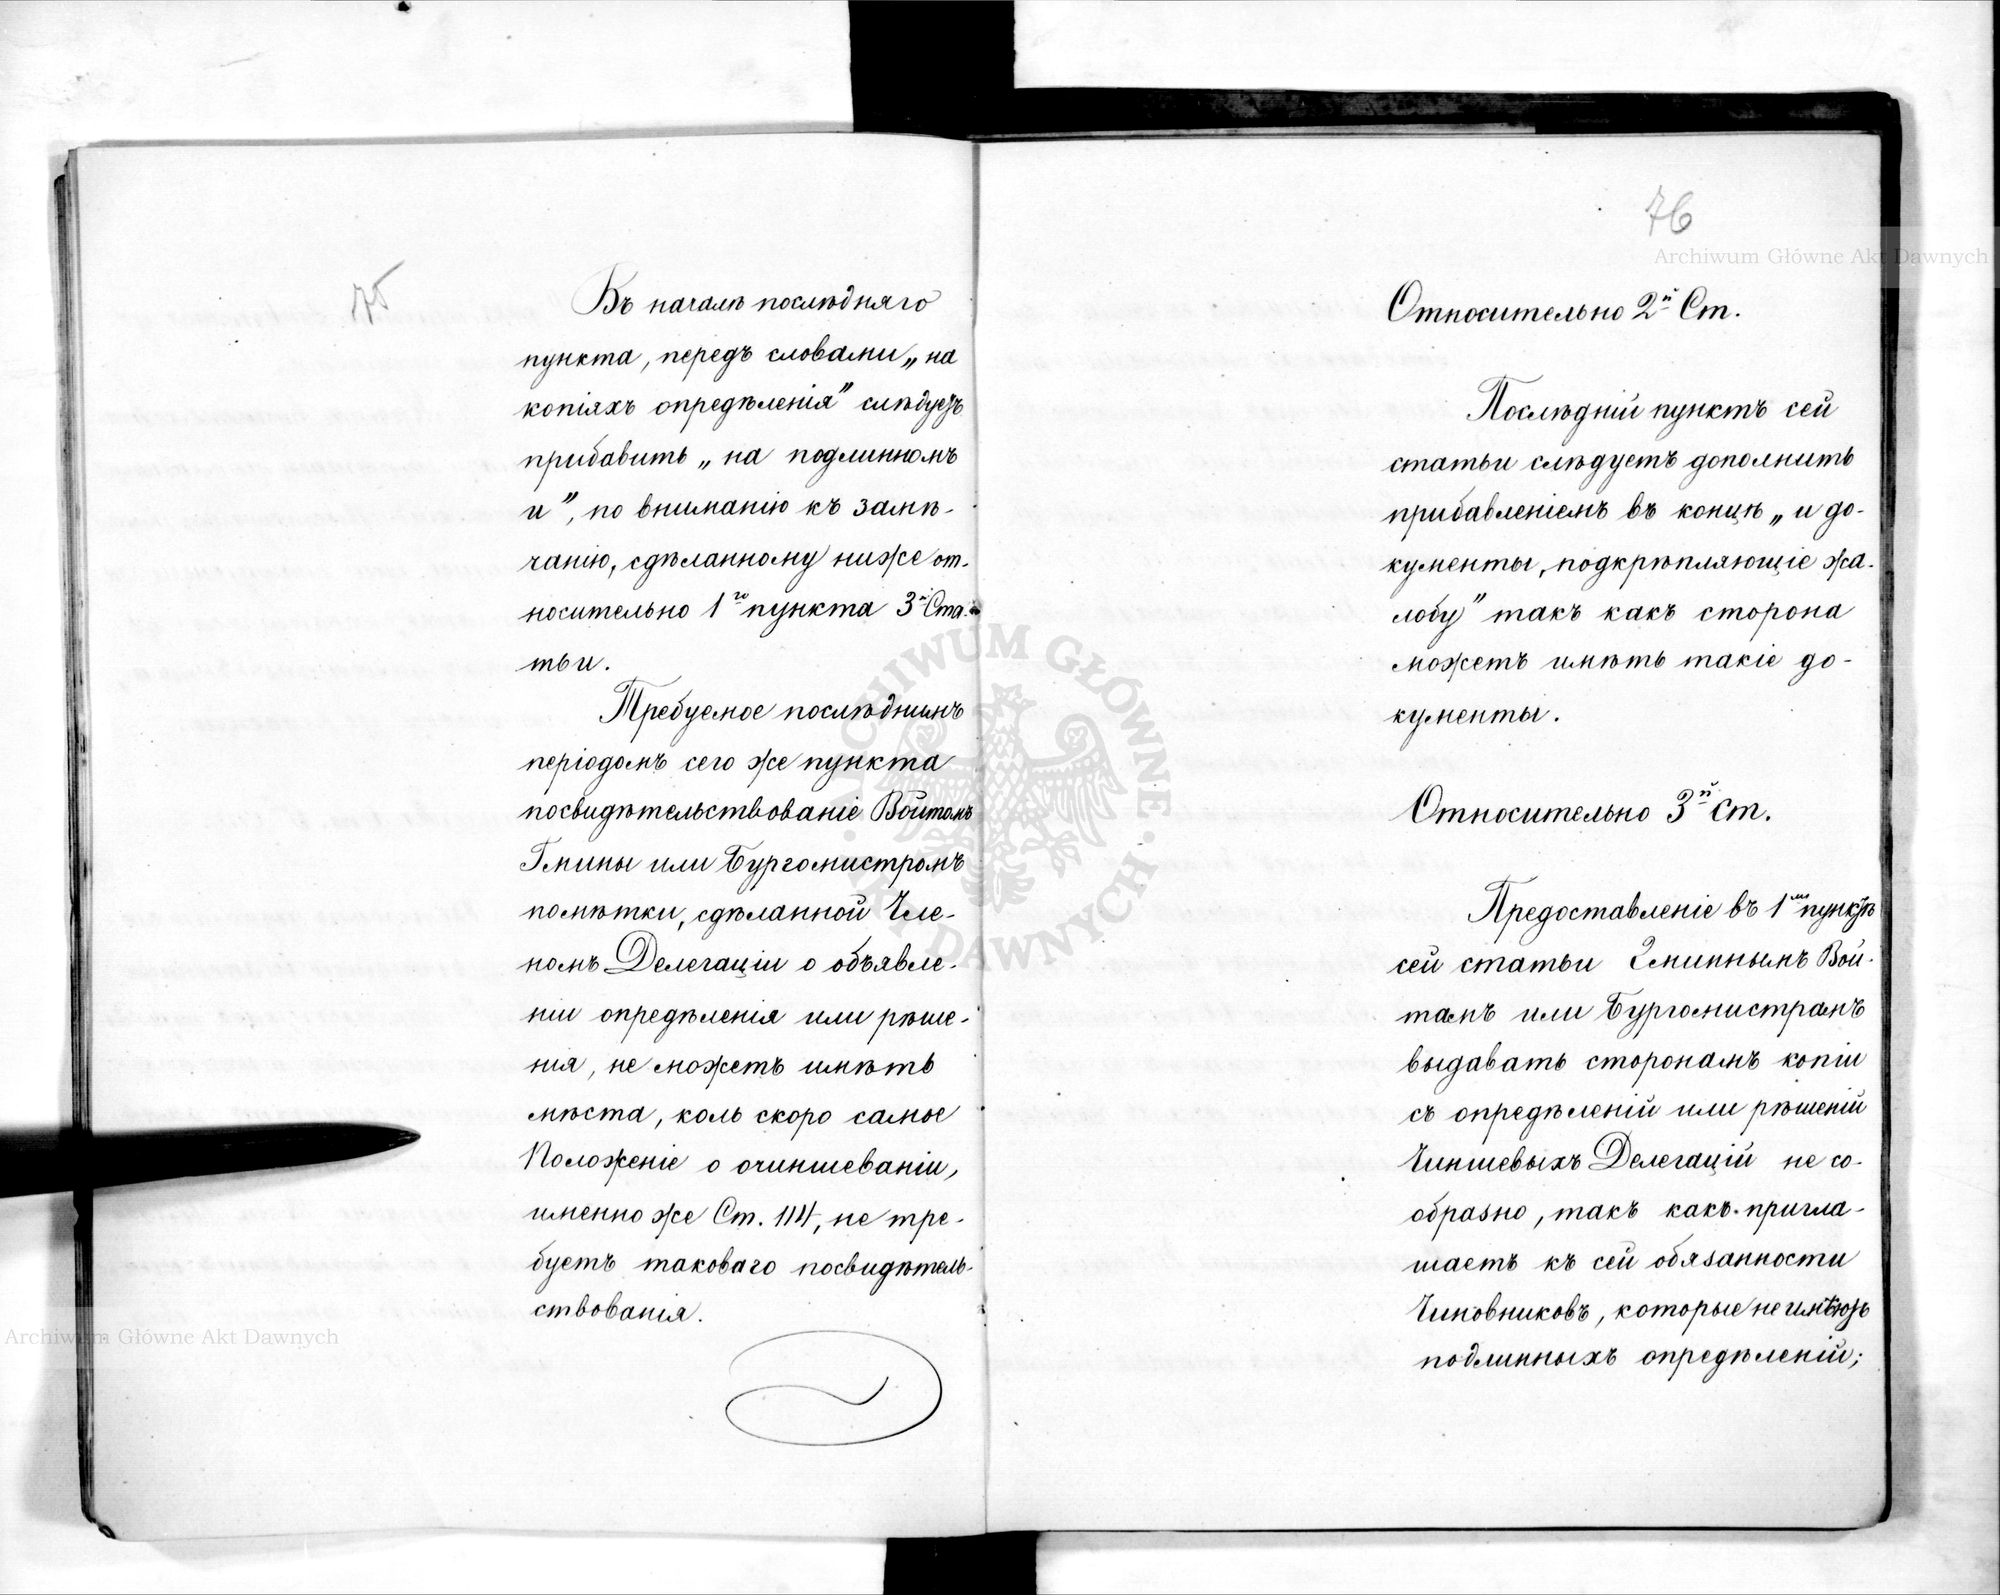 75
Въ началѣ послѣдняго
пункта, передъ словами „на
копіяхъ опредѣленія” слѣдуетъ
прибавить „на подлинномъ
и”, по вниманію къ замѣ-
чанію, сдѣланному ниже от-
носительно 1го пункта 3й Ста-
тьи.
Требуемое послѣднимъ
періодомъ сего же пункта
посвидѣтельствованіе Войтомъ
Гмины или Бургомистромъ
помѣтки, сдѣланной Чле-
номъ Делегаціи о объявле-
ніи опредѣленія или рѣше-
нія, не можетъ имѣть
мѣста, коль скоро самое
Положеніе о очиншеваніи,
именно же Ст. 114, не тре-
буетъ таковаго посвидѣтель-
ствованія.
76
Относительно 2й Ст.
Послѣдній пунктъ сей
статьи слѣдуетъ дополнить
прибавленіемъ въ концѣ „и до-
кументы, подкрѣпляющіе жа-
лобу” такъ какъ сторона
можетъ имѣть такіе до-
кументы.
Относительно 3й Ст.
Предоставленіе въ 1мъ пунктѣ
сей статьи Гминнымъ Вой-
тамъ или Бургомистрамъ
выдавать сторонамъ копіи
съ опредѣленій или рѣшеній
Чиншевыхъ Делегацій не со-
образно, такъ какъ пригла-
шаетъ къ сей обязанности
Чиновниковъ, которые не имѣютъ
подлинныхъ опредѣленій;
Archiwum Główne Akt Dawnych
Archiwum Główne Akt Dawnych
ARCHIWUM GŁÓWNE AKT DAWNYCH